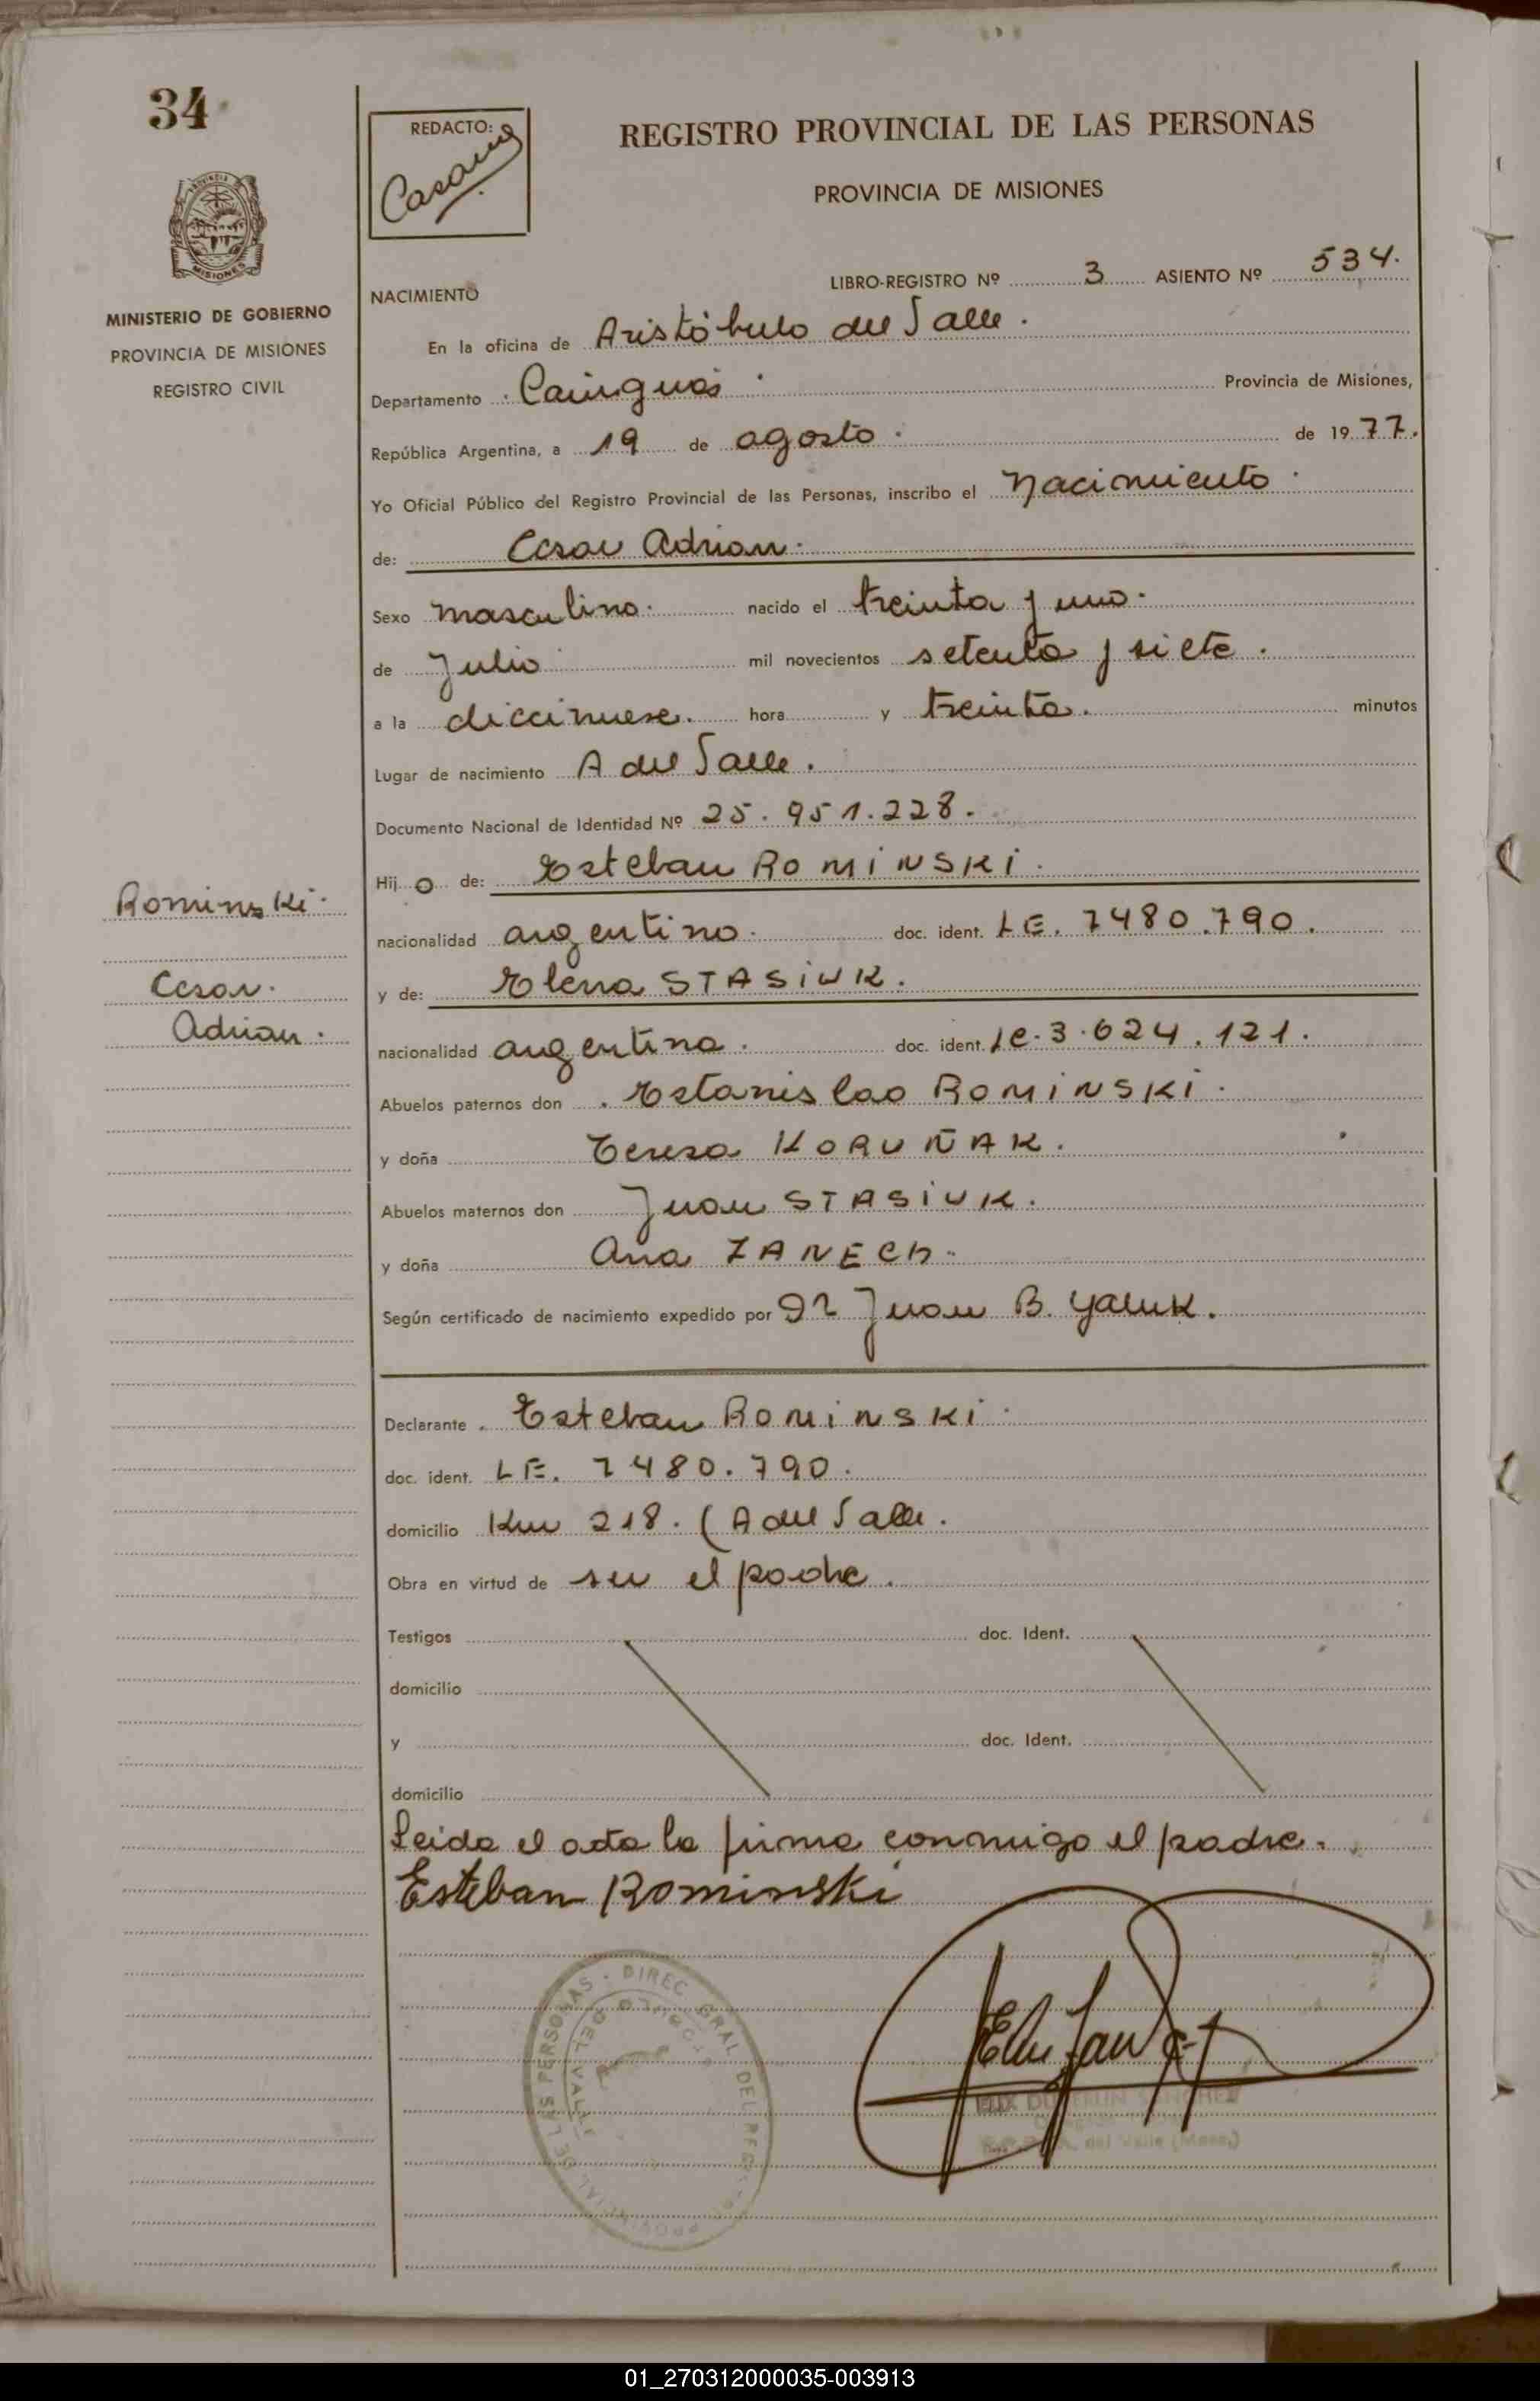 34
REDACTO:
REGISTRO PROVINCIAL DE LAS PERSONAS
PROVINCIA DE MISIONES
MISIONES
MINISTERIO DE GOBIERNO
PROVINCIA DE MISIONES
REGISTRO CIVIL
LIBRO-REGISTRO Nº 3 ASIENTO Nº 534.
NACIMIENTO
En la oficina de Aristóbulo del Valle.
Departamento Cainguás Provincia de Misiones,
República Argentina, a 19 de agosto. de 1977.
Yo Oficial Público del Registro Provincial de las Personas, inscribo el Nacimiento.
de: Cesar Adrian.
Sexo masculino. nacido el treinta y uno.
de Julio mil novecientos setenta y siete.
a la diecinueve. hora y treinta. minutos
Lugar de nacimiento A del Valle.
Documento Nacional de Identidad Nº 25.951.228.
Hijo de: Esteban ROMINSKI.
nacionalidad argentino. doc. ident. LE. 7480.790.
y de: Elena STASIUK.
nacionalidad argentina. doc. ident. LC. 3.624.121.
Abuelos paternos don Estanislao ROMINSKI.
y doña Teresa KORUÑAK.
Abuelos maternos don Juan STASIUK.
y doña Ana ZANECH.
Según certificado de nacimiento expedido por Dr Juan B. Yaluk.
Rominski.
Cesar.
Adrian.
Declarante Esteban ROMINSKI.
doc. ident. LE. 7480.790.
domicilio Km 218. (A del Valle.
Obra en virtud de ser el padre.
Testigos doc. Ident.
domicilio
y doc. Ident.
domicilio
Leida el acta la firma conmigo el padre.
Esteban Rominski
DIREC. GRAL DEL REG. PROVINCIAL DE LAS PERSONAS
DEL VALLE
A. del Valle (Mnes.)
01_270312000035-003913